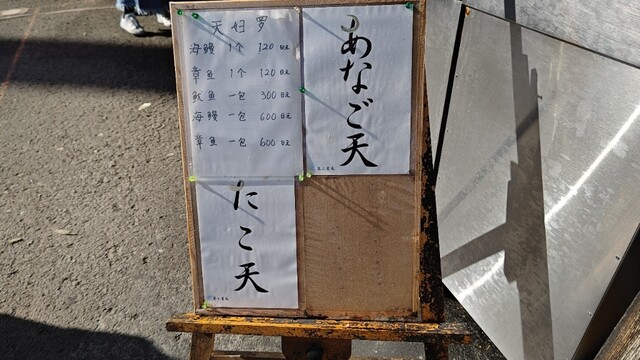 天妇罗
海鳗 1个 120日元
章鱼 1个 120日元
鱿鱼 一包 300日元
海鳗 一包 600日元
章鱼 一包 600日元
あなご天
たこ天